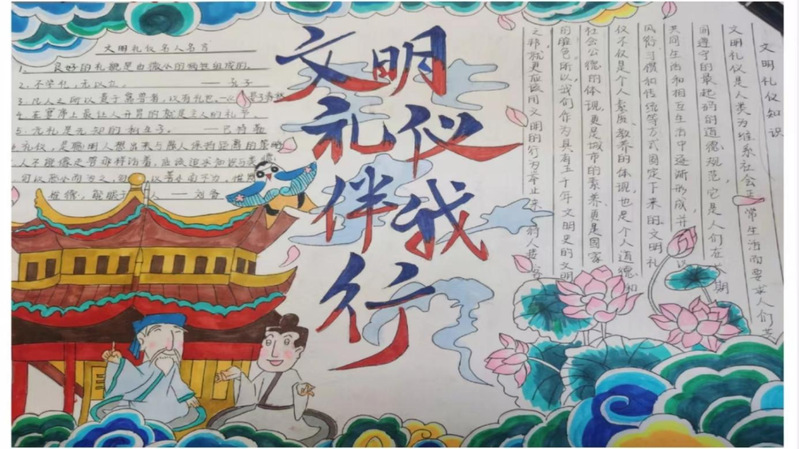 文明礼仪名人名言
1、良好的礼貌是由微小的牺牲组成的。
2、不学礼，无以立。——孔子
3、凡人之所以贵于禽兽者，以有礼也。
4、在宴席上最让人开胃的就是主人的礼节。
5、无礼是无知的私生子。——巴特勒
礼仪，是聪明人想出来与愚人
文明
礼仪
伴我
行
文明礼仪知识
文明礼仪是人类为维系社会正常生活而要求人们共
同遵守的最起码的道德规范，它是人们在长期
共同生活和相互生活中逐渐形成，并以
风俗、习惯和传统等方式固定下来的。文明礼
仪不仅是个人素质、教养的体现，也是个人道德和
社会公德的体现，更是城市的素养，更是国家
的脸色，所以，我们作为具有五千年文明史的文明
之邦，就更应该用文明的行为举止